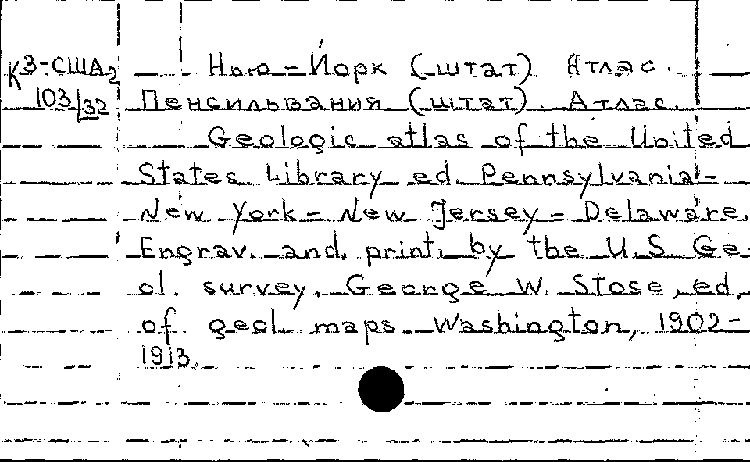 К3-США2 Нью-Йорк (штат). Атлас.
103/32 Пенсильвания (штат). Атлас.
Geologic atlas of the United
States. Library ed. Pennsylvania-
New York - New Jersey - Delaware.
Engrav. and. print. by the U.S Ge-
ol. survey. George W. Stose, ed.
of geol. maps. Washington, 1902-
1913.